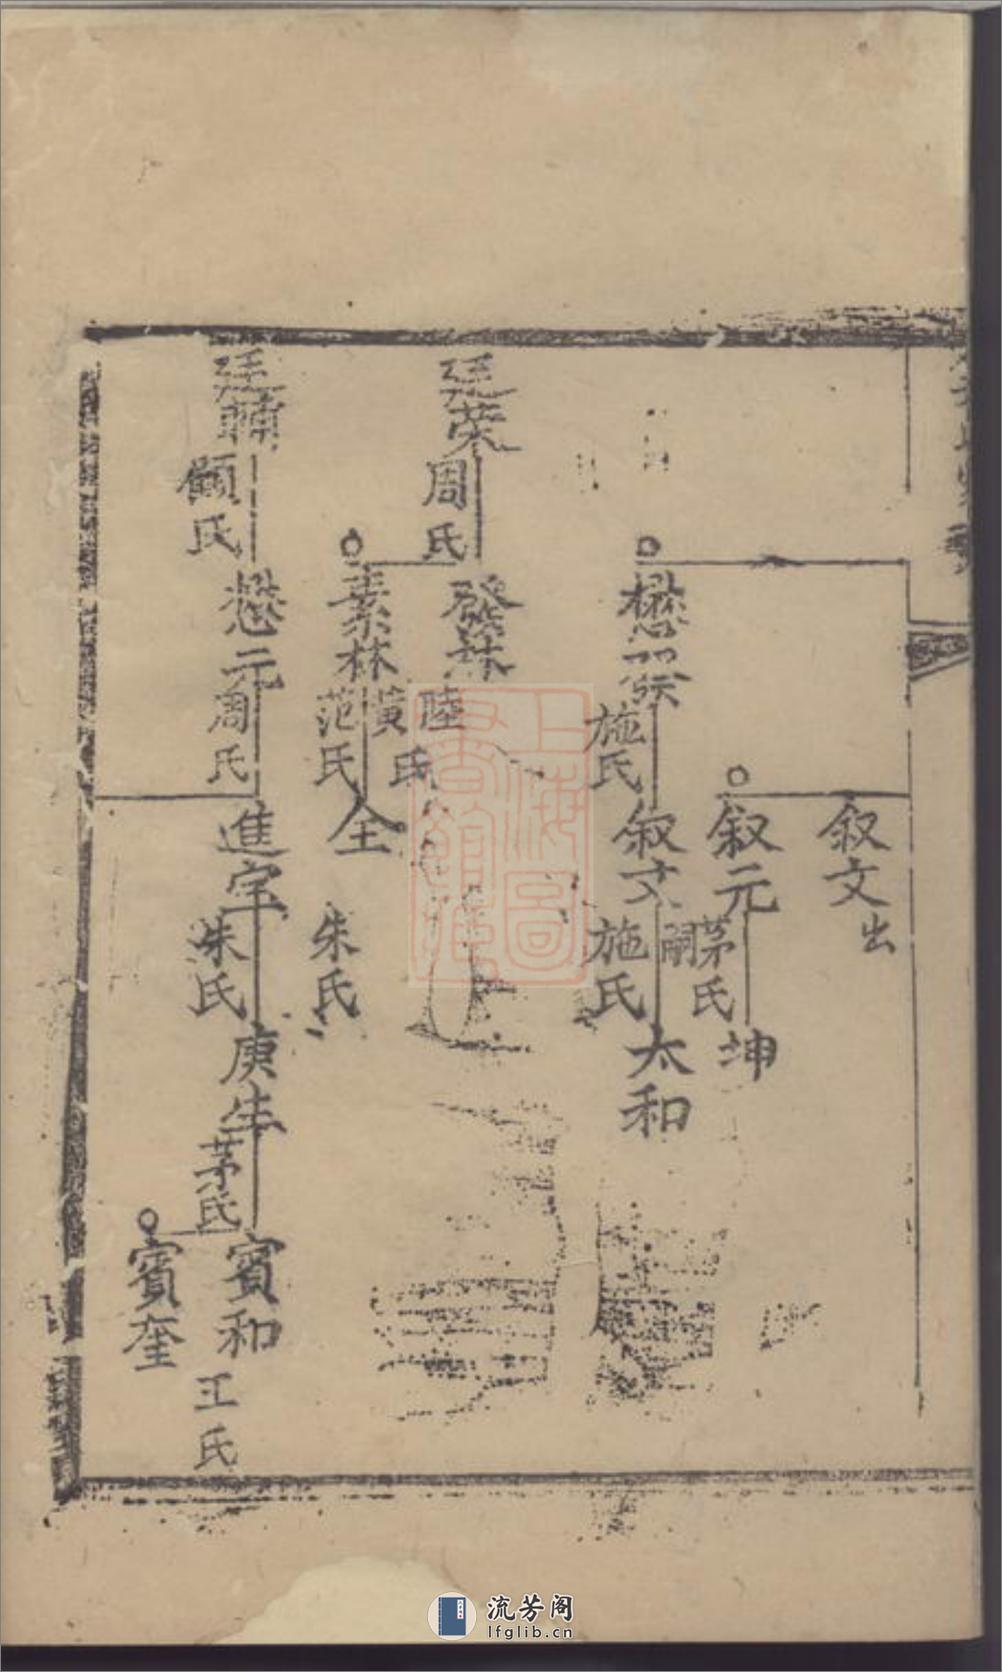 叙文出
叙元
茅氏
坤
懋
施氏
叙文
施氏
嗣
太和
廷荣
周氏
發林
陸氏
黄
素林
范氏
全
朱氏
廷輔
顧氏
懋元
周氏
進宇
朱氏
庚生
茅氏
賓和
王氏
賓奎
上海圖書館藏
流芳阁
lfglib.cn